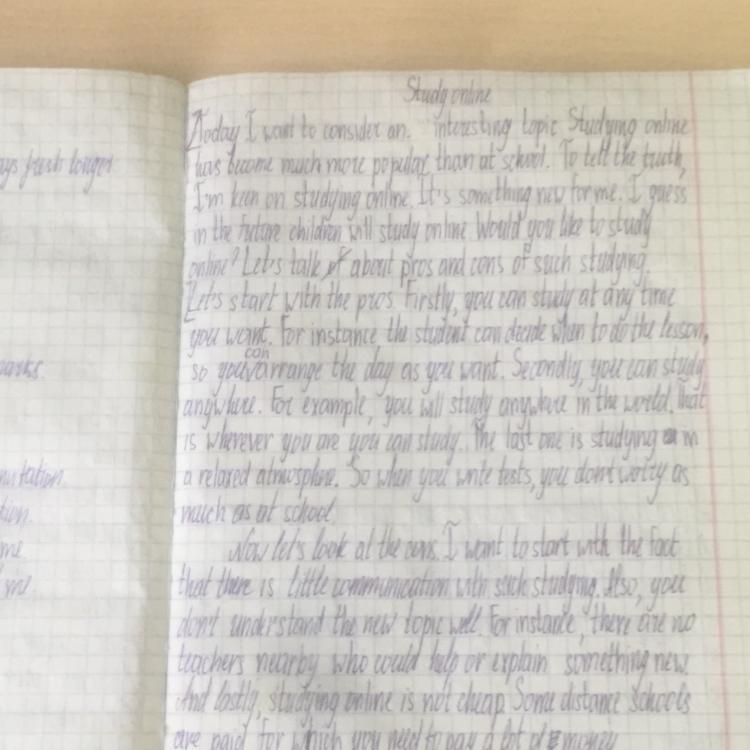 Study online
Today I want to consider an interesting topic Studying online
has become much more popular than at school. To tell the truth,
ays fresh longer
I'm keen on studying online. It's something new for me. I guess
in the future children will study online Would you like to study
online? Let's talk about pros and cons of such studying.
Let's start with the pros. Firstly, you can study at any time
you want. For instance the student can decide when to do the lesson,
so you can arrange the day as you want. Secondly, you can study
anywhere. For example, you will study anywhere in the world, that
is wherever you are you can study. The last one is studying in
a relaxed atmosphere. So when you write tests, you don't worry as
much as at school.
Now let's look at the cons. I want to start with the fact
that there is little communication with such studying. Also, you
don't understand the new topic well. For instance, there are no
teachers nearby who could help or explain something new.
And lastly, studying online is not cheap. Some distance schools
are paid, for which you need to pay a lot of money